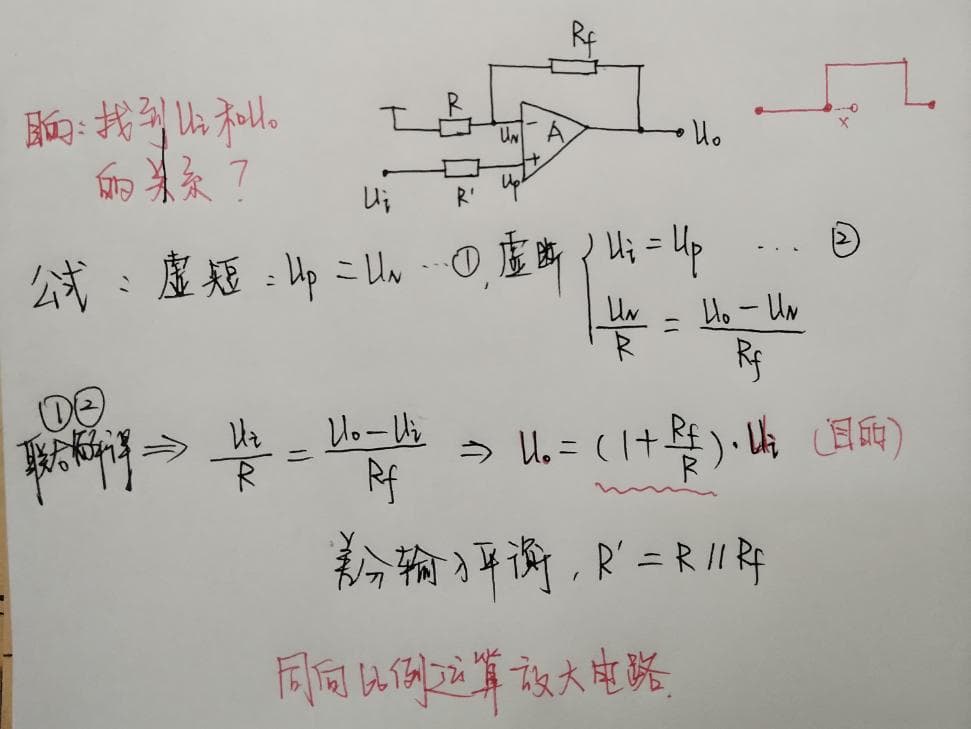 Rf
R
uN
-
A
+
uo
ui
R'
up
x
目的: 找到ui和uo
的关系?
公式: 虚短: up = uN ... ①, 虚断 { ui = up ... ②
uN/R = (uo - uN)/Rf
①②
联合解得 ⇒ ui/R = (uo - ui)/Rf ⇒ uo = (1 + Rf/R)·ui (目的)
差分输入平衡, R' = R // Rf
同向比例运算放大电路.